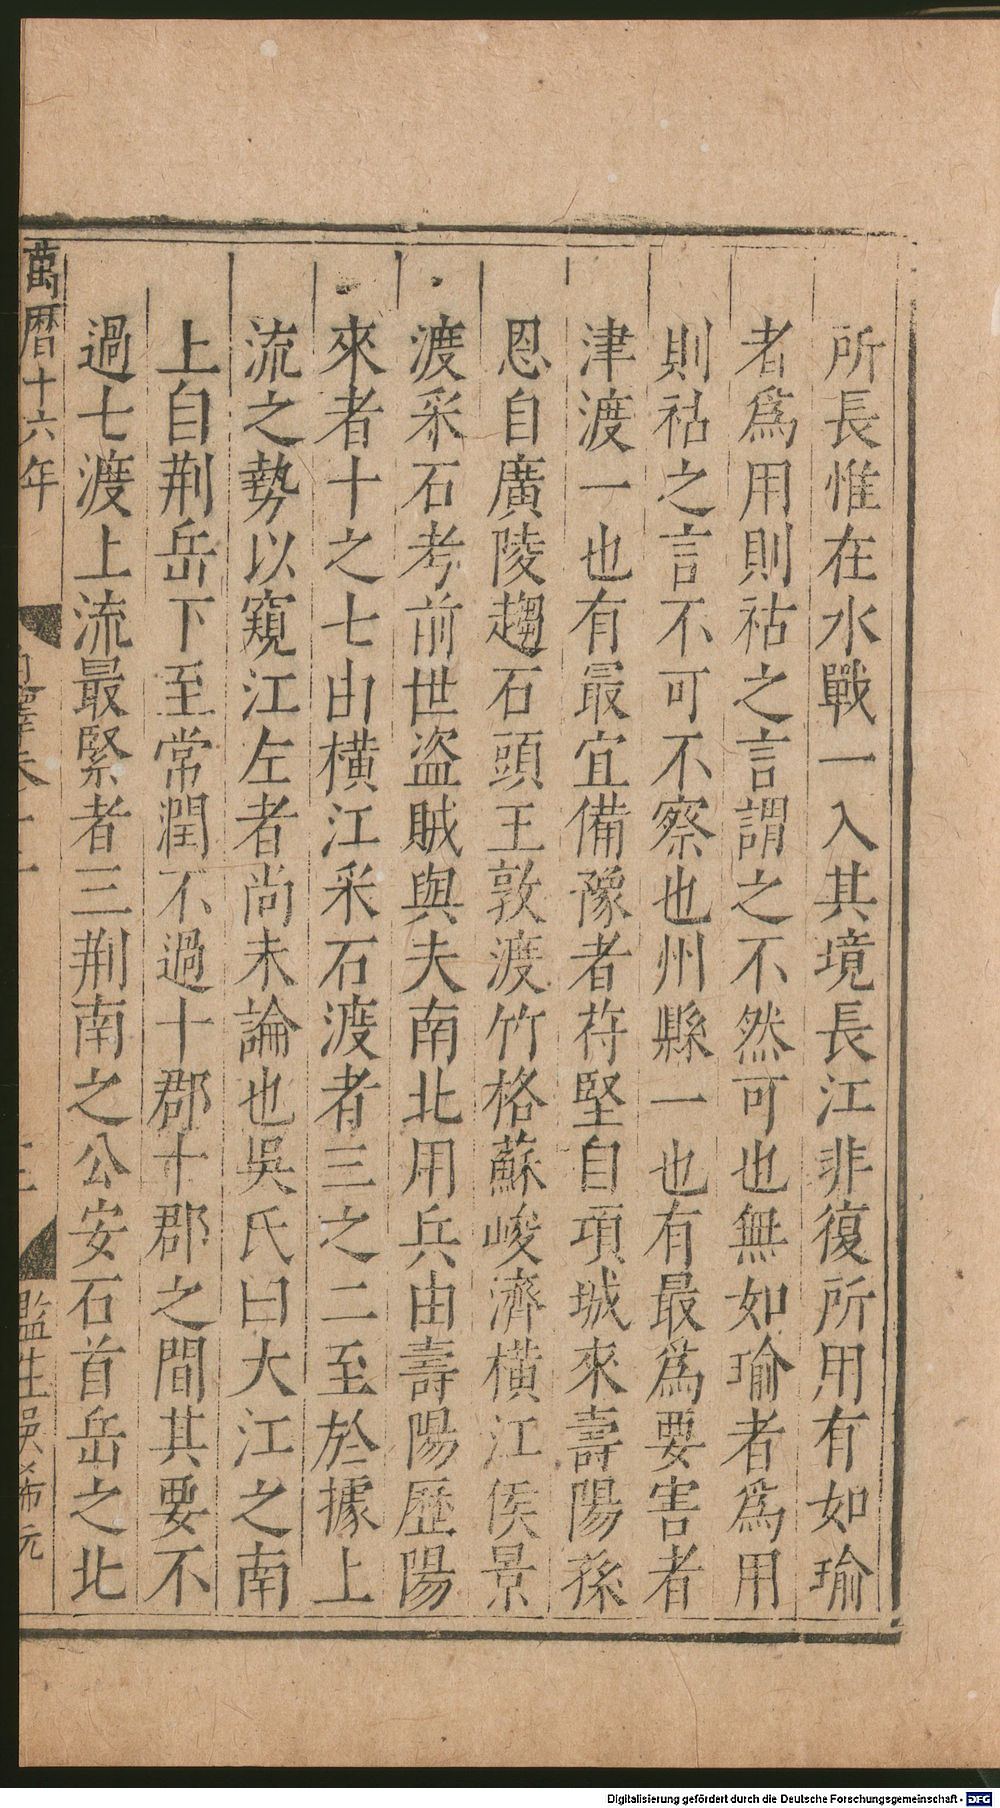 所長惟在水戰一入其境長江非復所用有如瑜
者爲用則祜之言謂之不然可也無如瑜者爲用
則祜之言不可不察也州縣一也有最爲要害者
津渡一也有最宜備豫者苻堅自項城來壽陽孫
恩自廣陵趨石頭王敦渡竹格蘇峻濟橫江侯景
渡采石考前世盜賊與夫南北用兵由壽陽歷陽
來者十之七由橫江采石渡者三之二至於據上
流之勢以窺江左者尚未論也吳氏曰大江之南
上自荆岳下至常潤不過十郡十郡之間其要不
過七渡上流最緊者三荆南之公安石首岳之北
萬曆十六年
監生吳希元
Digitalisierung gefördert durch die Deutsche Forschungsgemeinschaft - DFG